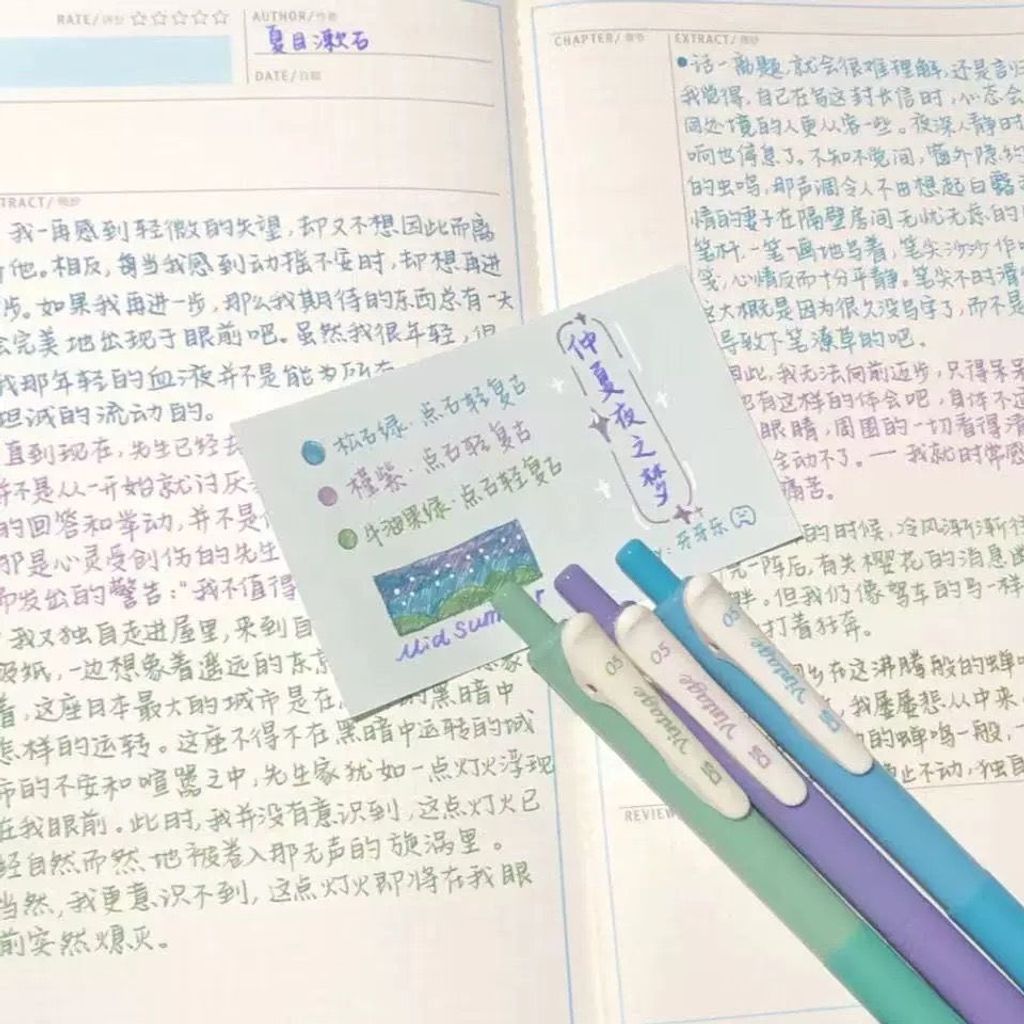 RATE/评分 ☆☆☆☆☆
AUTHOR/作者
夏目漱石
DATE/日期
EXTRACT/摘抄
我一再感到轻微的失望,却又不想因此而离
他。相反,每当我感到动摇不安时,却想再进
步。如果我再进一步,那么我期待的东西总有一天
会完美地出现于眼前吧。虽然我很年轻,但
我那年轻的血液并不是能为所有
坦诚的流动的。
直到现在,先生已经去
并不是从一开始就讨厌
的回答和举动,并不是
那是心灵受创伤的先生
而发出的警告:“我不值得
我又独自走进屋里,来到自
吸纸,一边想象着遥远的东京
着,这座日本最大的城市是在 的黑暗中
怎样的运转。这座不得不在黑暗中运转的城
市的不安和喧嚣之中,先生家犹如一点灯火浮现
在我眼前。此时,我并没有意识到,这点灯火已
经自然而然地被卷入那无声的旋涡里。
当然,我更意识不到,这点灯火即将在我眼
前突然熄灭。
松石绿·点石轻复古
槿紫·点石轻复古
牛油果绿·点石轻复古
仲夏夜之梦
Y:牙牙乐
Mid summer
05 Vintage DS
05 Vintage DS
05 Vintage DS
CHAPTER/章节
EXTRACT/摘抄
话一离题,就会很难理解,还是言归
我觉得,自己在写这封长信时,心态会
同处境的人更从容一些。夜深人静时
响也停息了。不知不觉间,窗外隐约
的虫鸣,那声调令人不由想起白露
情的妻子在隔壁房间无忧无虑的
笔杆,一笔一画地写着,笔尖沙沙作响
笺,心情反而十分平静。笔尖不时滑
这大概是因为很久没写字了,而不是
导致下笔潦草的吧。
因此,我无法向前迈步,只得呆呆
也有这样的体会吧,身体不适
眼睛,周围的一切看得清
全动不了。——我就时常感
痛苦。
的时候,冷风渐渐
完一阵后,有关樱花的消息
畔。但我们像驾车的马一样
打着狂奔。
在这沸腾般的蝉
我屡屡悲从中来
的蝉鸣一般,一
止不动,独自
REVIEW